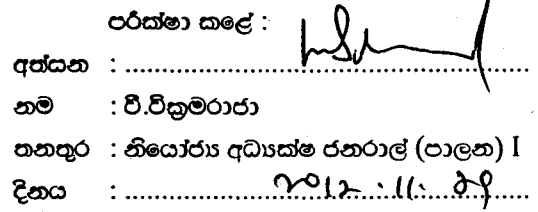 පරීක්ෂා කළේ :
අත්සන : ..........................................................
නම : වී.වික්‍රමරාජා
තනතුර : නියෝජ්‍ය අධ්‍යක්ෂ ජනරාල් (පාලන) I
දිනය : 2012.11.29